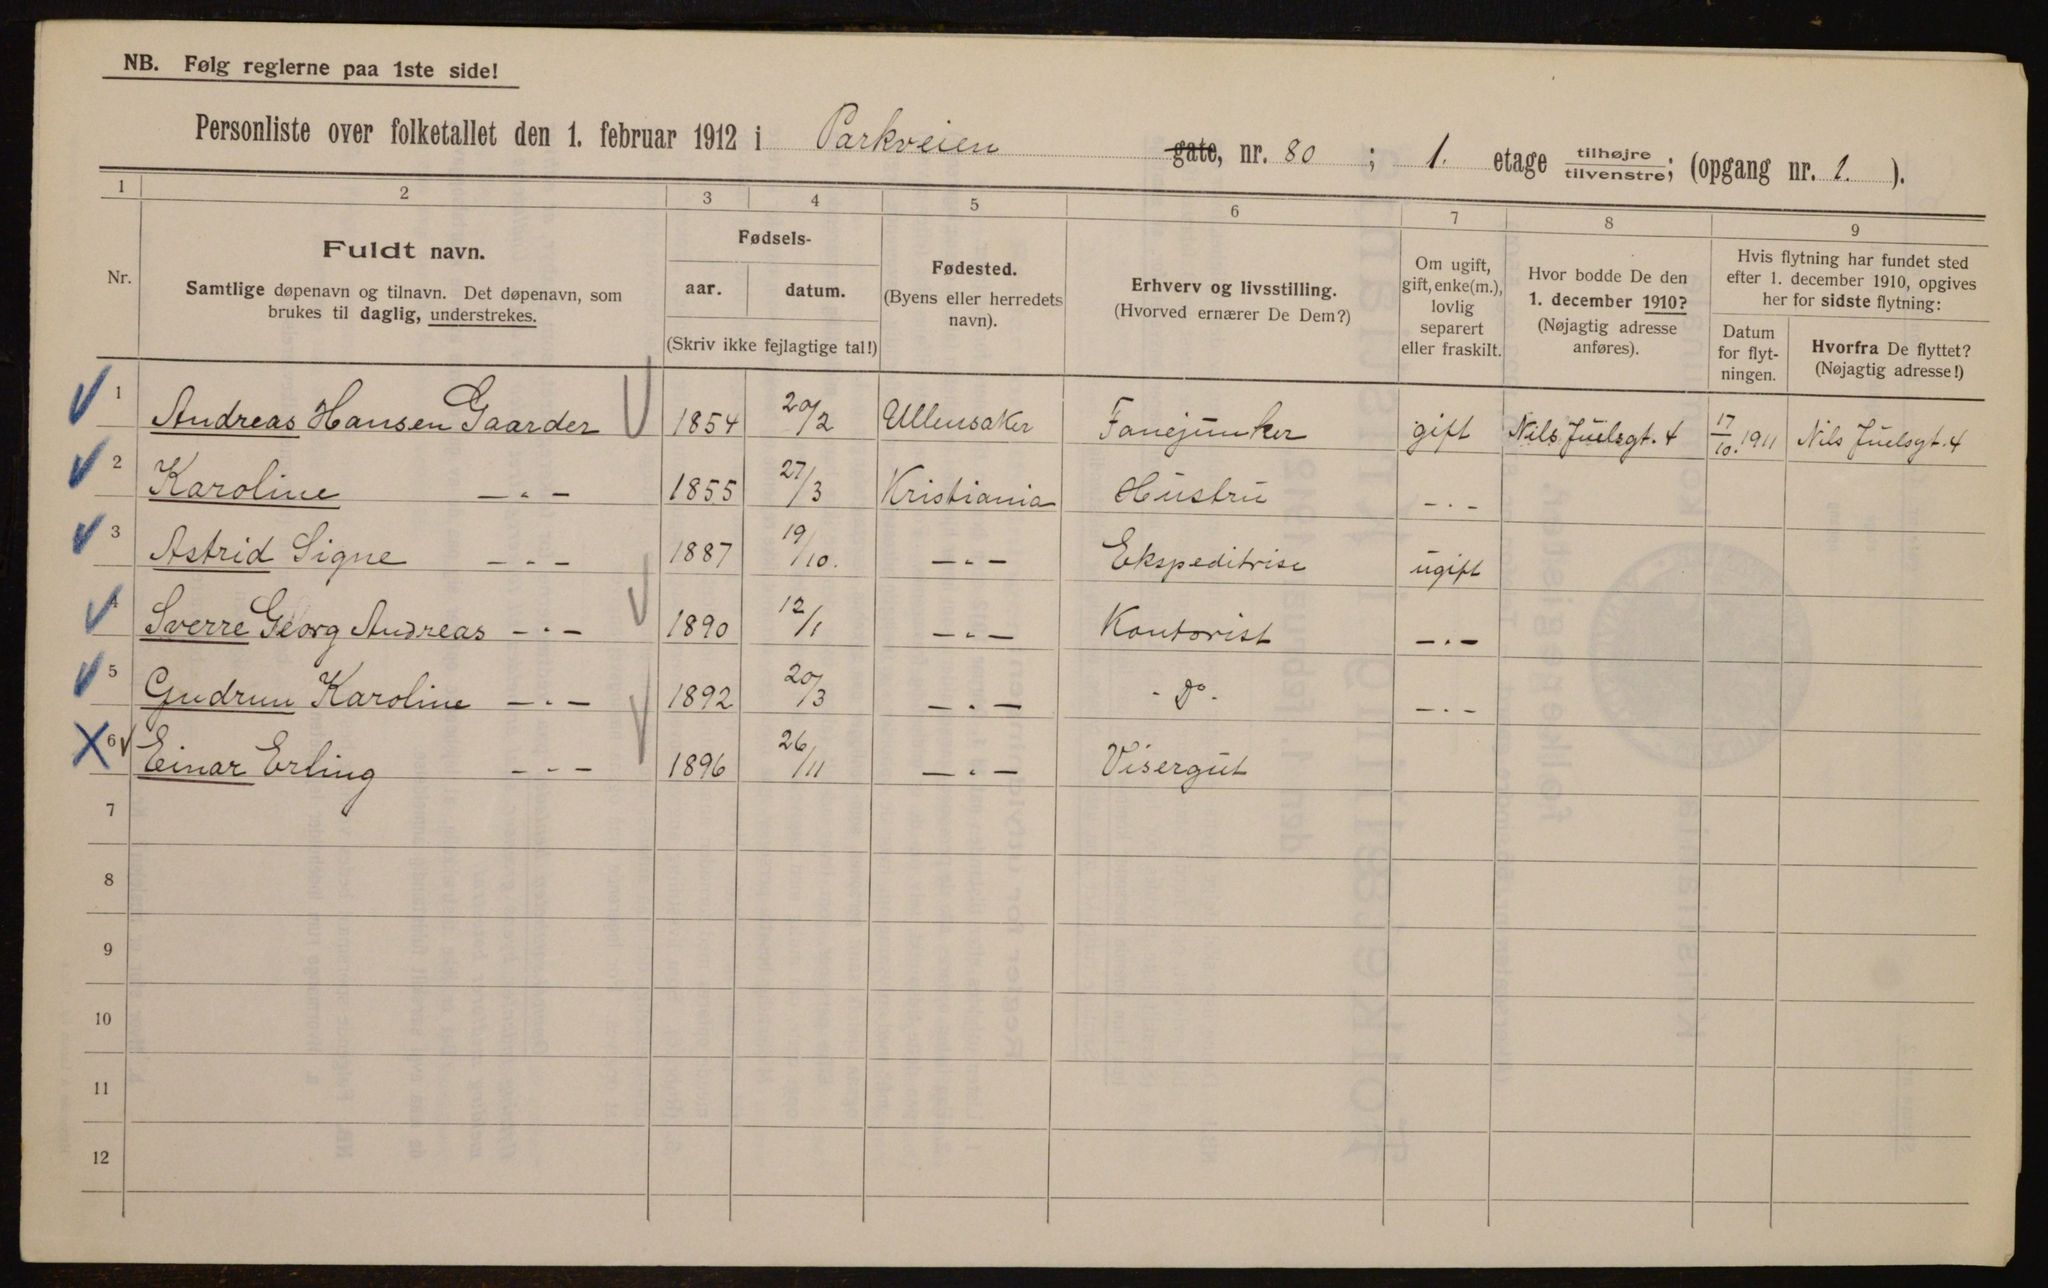 NB. Følg reglerne paa 1ste side!
Personliste over folketallet den 1. februar 1912 i Parkveien gate, nr. 80 ; 1. etage tilhøjre tilvenstre; (opgang nr. 1. ).
1 2 3 4 5 6 7 8 9
Nr.
Fuldt navn.
Samtlige døpenavn og tilnavn. Det døpenavn, som
brukes til daglig, understrekes.
Fødsels-
aar. datum.
(Skriv ikke fejlagtige tal!)
Fødested.
(Byens eller herredets
navn).
Erhverv og livsstilling.
(Hvorved ernærer De Dem?)
Om ugift,
gift, enke(m.),
lovlig
separert
eller fraskilt.
Hvor bodde De den
1. december 1910?
(Nøjagtig adresse
anføres).
Hvis flytning har fundet sted
efter 1. december 1910, opgives
her for sidste flytning:
Datum
for flyt-
ningen.
Hvorfra De flyttet?
(Nøjagtig adresse!)
1 Andreas Hansen Gaarder 1854 20/2 Ullensaker Fanejunker gift Nils Juelsgt. 4 17/10. 1911 Nils Juelsgt. 4
2 Karoline —"— 1855 27/3 Kristiania Hustru —"—
3 Astrid Signe —"— 1887 19/10. —"— Ekspeditrise ugift
4 Sverre Georg Andreas —"— 1890 12/1 —"— Kontorist —"—
5 Gudrun Karoline —"— 1892 20/3 —"— - Do - —"—
6 Einar Erling —"— 1896 26/11 —"— Visergut
7
8
9
10
11
12